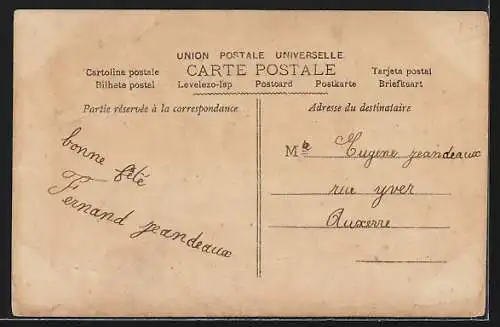 UNION POSTALE UNIVERSELLE
CARTE POSTALE
Cartolina postale Tarjeta postal
Bilhete postal Levelezo-lsp Postcard Postkarte Briefkaart
Partie réservée à la correspondance
Adresse du destinataire
bonne fête
Fernand jeandeaux
Mle Eugene jeandeaux
rue yver
Auxerre